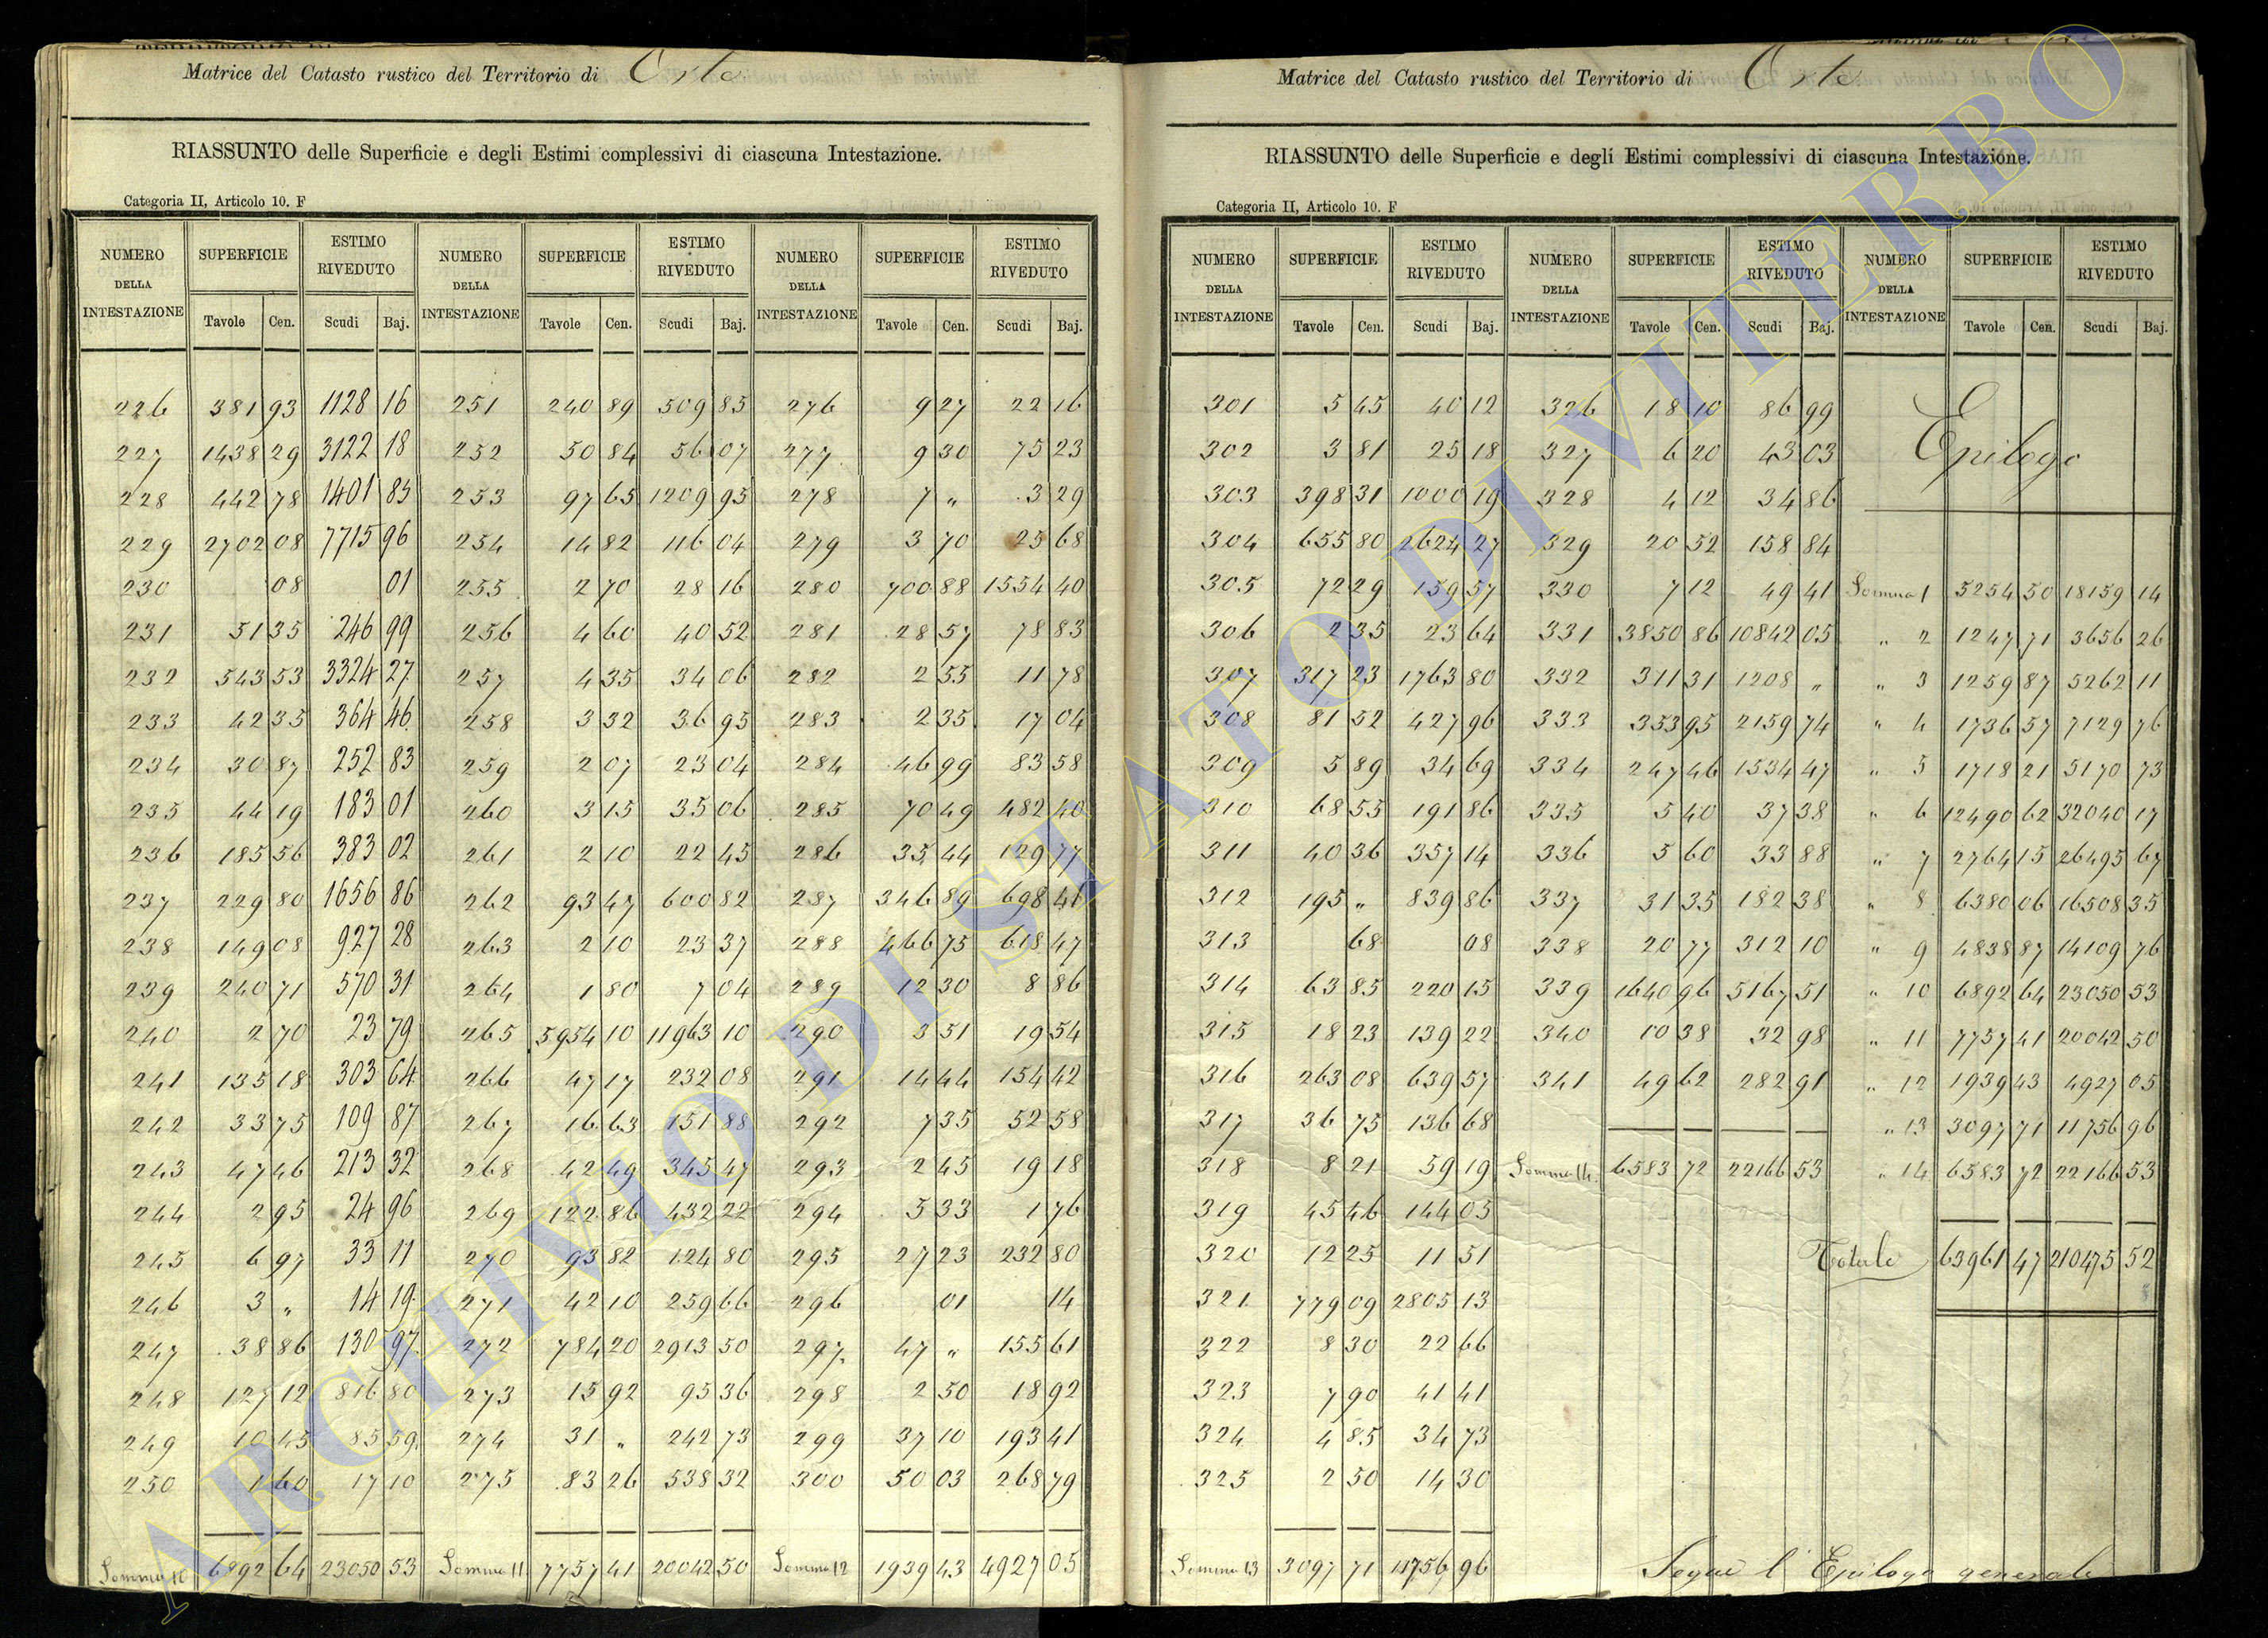 Matrice del Catasto rustico del Territorio di Orte
RIASSUNTO delle Superficie e degli Estimi complessivi di ciascuna Intestazione.
Categoria II, Articolo 10. F
NUMERO DELLA INTESTAZIONE SUPERFICIE ESTIMO RIVEDUTO NUMERO DELLA INTESTAZIONE SUPERFICIE ESTIMO RIVEDUTO NUMERO DELLA INTESTAZIONE SUPERFICIE ESTIMO RIVEDUTO
Tavole Cen. Scudi Baj. Tavole Cen. Scudi Baj. Tavole Cen. Scudi Baj.
226 381 93 1128 16 251 240 89 509 85 276 9 27 22 16
227 1438 29 3122 18 252 50 84 56 07 277 9 30 75 23
228 442 78 1401 85 253 97 65 1209 95 278 7 „ 3 29
229 2702 08 7715 96 254 14 82 116 04 279 3 70 25 68
230 08 01 255 2 70 28 16 280 700 88 1554 40
231 51 35 246 99 256 4 60 40 52 281 28 57 78 83
232 543 53 3324 27 257 4 35 34 06 282 2 55 11 78
233 42 35 364 46 258 3 32 36 95 283 2 35 17 04
234 30 87 252 83 259 2 07 23 04 284 46 99 83 58
235 44 19 183 01 260 3 15 35 06 285 70 49 482 40
236 185 56 383 02 261 2 10 22 45 286 35 44 129 77
237 229 80 1656 86 262 93 47 600 82 287 346 89 698 46
238 149 08 927 28 263 2 10 23 37 288 466 75 618 47
239 240 71 570 31 264 1 80 7 04 289 12 30 8 86
240 2 70 23 79 265 5954 10 11963 10 290 3 51 19 54
241 135 18 303 64 266 47 17 232 08 291 14 44 154 42
242 33 75 109 87 267 16 63 151 88 292 7 35 52 58
243 47 46 213 32 268 42 49 345 47 293 2 45 19 18
244 2 95 24 96 269 122 86 432 22 294 5 33 1 76
245 6 97 33 11 270 93 82 124 80 295 27 23 232 80
246 3 „ 14 19 271 42 10 259 66 296 01 14
247 38 86 130 97 272 784 20 2913 50 297 47 „ 155 61
248 127 12 816 80 273 15 92 95 36 298 2 50 18 92
249 10 45 85 59 274 31 „ 242 73 299 37 10 193 41
250 1 60 17 10 275 83 26 538 32 300 50 03 268 79
Somma 10 6892 64 23050 53 Somma 11 7757 41 20042 50 Somma 12 1939 43 4927 05
Matrice del Catasto rustico del Territorio di Orte
RIASSUNTO delle Superficie e degli Estimi complessivi di ciascuna Intestazione.
Categoria II, Articolo 10. F
NUMERO DELLA INTESTAZIONE SUPERFICIE ESTIMO RIVEDUTO NUMERO DELLA INTESTAZIONE SUPERFICIE ESTIMO RIVEDUTO NUMERO DELLA INTESTAZIONE SUPERFICIE ESTIMO RIVEDUTO
Tavole Cen. Scudi Baj. Tavole Cen. Scudi Baj. Tavole Cen. Scudi Baj.
301 5 45 40 12 326 18 10 86 99
302 3 81 25 18 327 6 20 43 03 Epilogo
303 398 31 1000 19 328 4 12 34 86
304 655 80 2624 27 329 20 52 158 84
305 72 29 159 57 330 7 12 49 41 Somma 1 5254 50 18159 14
306 2 35 23 64 331 3850 86 10842 05 „ 2 1247 71 3656 26
307 317 23 1763 80 332 311 31 1208 „ „ 3 1259 87 5262 11
308 81 52 427 96 333 353 95 2159 74 „ 4 1736 57 7129 76
309 5 89 34 69 334 247 46 1534 47 „ 5 1718 21 5170 73
310 68 55 191 86 335 5 40 37 38 „ 6 12490 62 32040 17
311 40 36 357 14 336 5 60 33 88 „ 7 2764 15 26495 67
312 195 „ 839 86 337 31 35 182 38 „ 8 6380 06 16508 35
313 68 08 338 20 77 312 10 „ 9 4838 87 14109 76
314 63 85 220 15 339 1640 96 5167 51 „ 10 6892 64 23050 53
315 18 23 139 22 340 10 38 32 98 „ 11 7757 41 20042 50
316 263 08 639 57 341 49 62 282 91 „ 12 1939 43 4927 05
317 36 75 136 68 „ 13 3097 71 11756 96
318 8 21 59 19 Somma 14 6583 72 22166 53 „ 14 6583 72 22166 53
319 45 46 144 05
320 12 25 11 51 Totale 63961 47 210475 52
321 779 09 2805 13
322 8 30 22 66
323 7 90 41 41
324 4 85 34 73
325 2 50 14 30
Somma 13 3097 71 11756 96 Segue l' Epilogo generale
ARCHIVIO DI STATO DI VITERBO